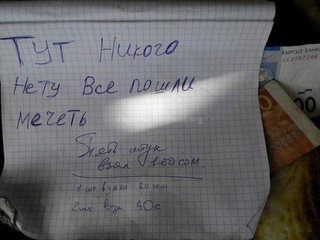 Тут Никого
Нету Все пошли
мечеть
5яеть штук
взял 100 сом
1 шт взял 20 сом
2 шт взя 40 с
КЫРГЫЗ БАНКЫ
00